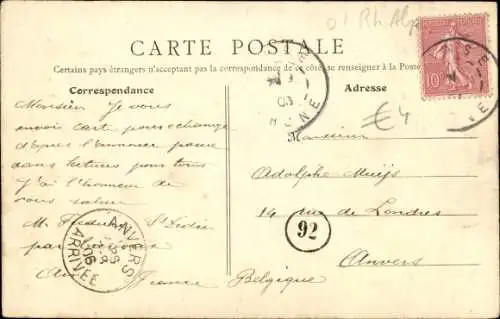 01 Rh. Alp
CARTE POSTALE
Certains pays étrangers n'acceptant pas la correspondance de ce côté se renseigner à la Poste
Correspondance
Adresse
10
€4
Monsieur Je vous
envoie carte pour échange
d'après l'annonce parue
dans lectures pour tous
J'ai l'honneur de
vous saluer
M.
par
France
Monsieur
Adolphe Muijs
14 rue de Londres
Anvers
Belgique
92
ANVERS
ARRIVÉE
06